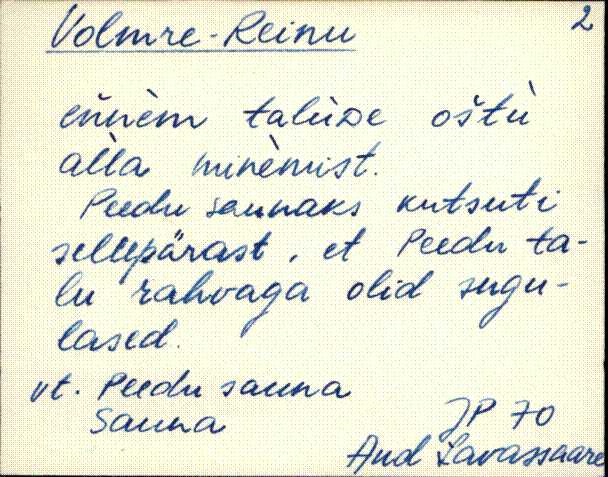 Volmre-Reinu 2
eńńèm talùDe ośtù
aĺĺa minèmist.
Peedu saunaks kutsuti
sellepärast, et Peedu ta-
lu rahvaga olid sugu-
lased.
vt. Peedu sauna
Sauna
JP 70
And Lavassaare